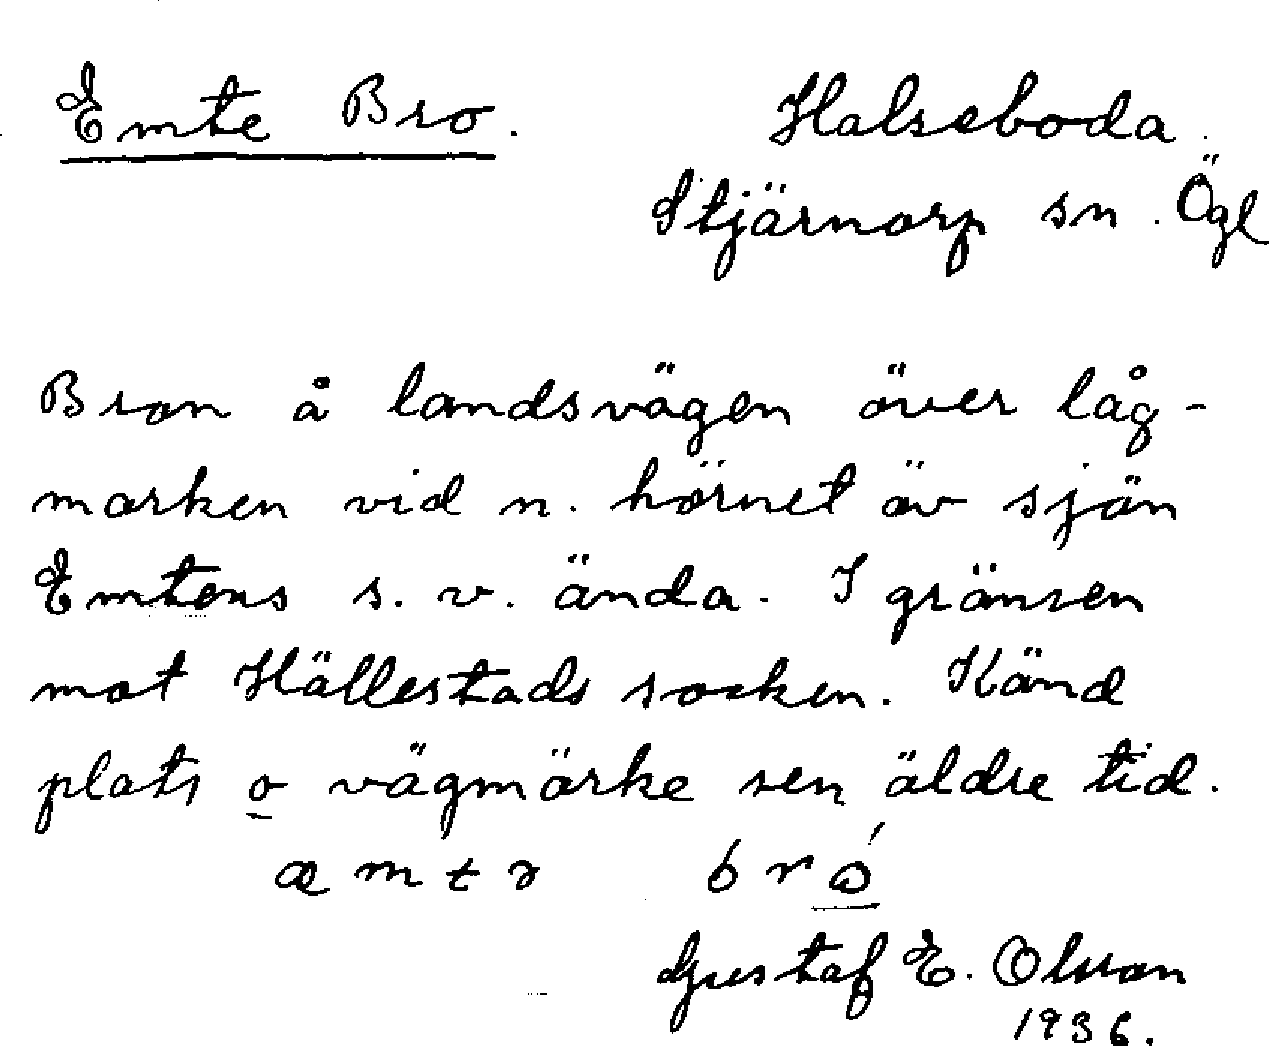 Emte Bro. Halseboda.
Stjärnorp sn. Ögl
Bron å landsvägen över låg-
marken vid n. hörnet av sjön
Emtens s. v. ända. I gränsen
mot Hällestads socken. Känd
plats o vägmärke sen äldre tid.
æmtə bró
Gustaf E. Olsson
1936.